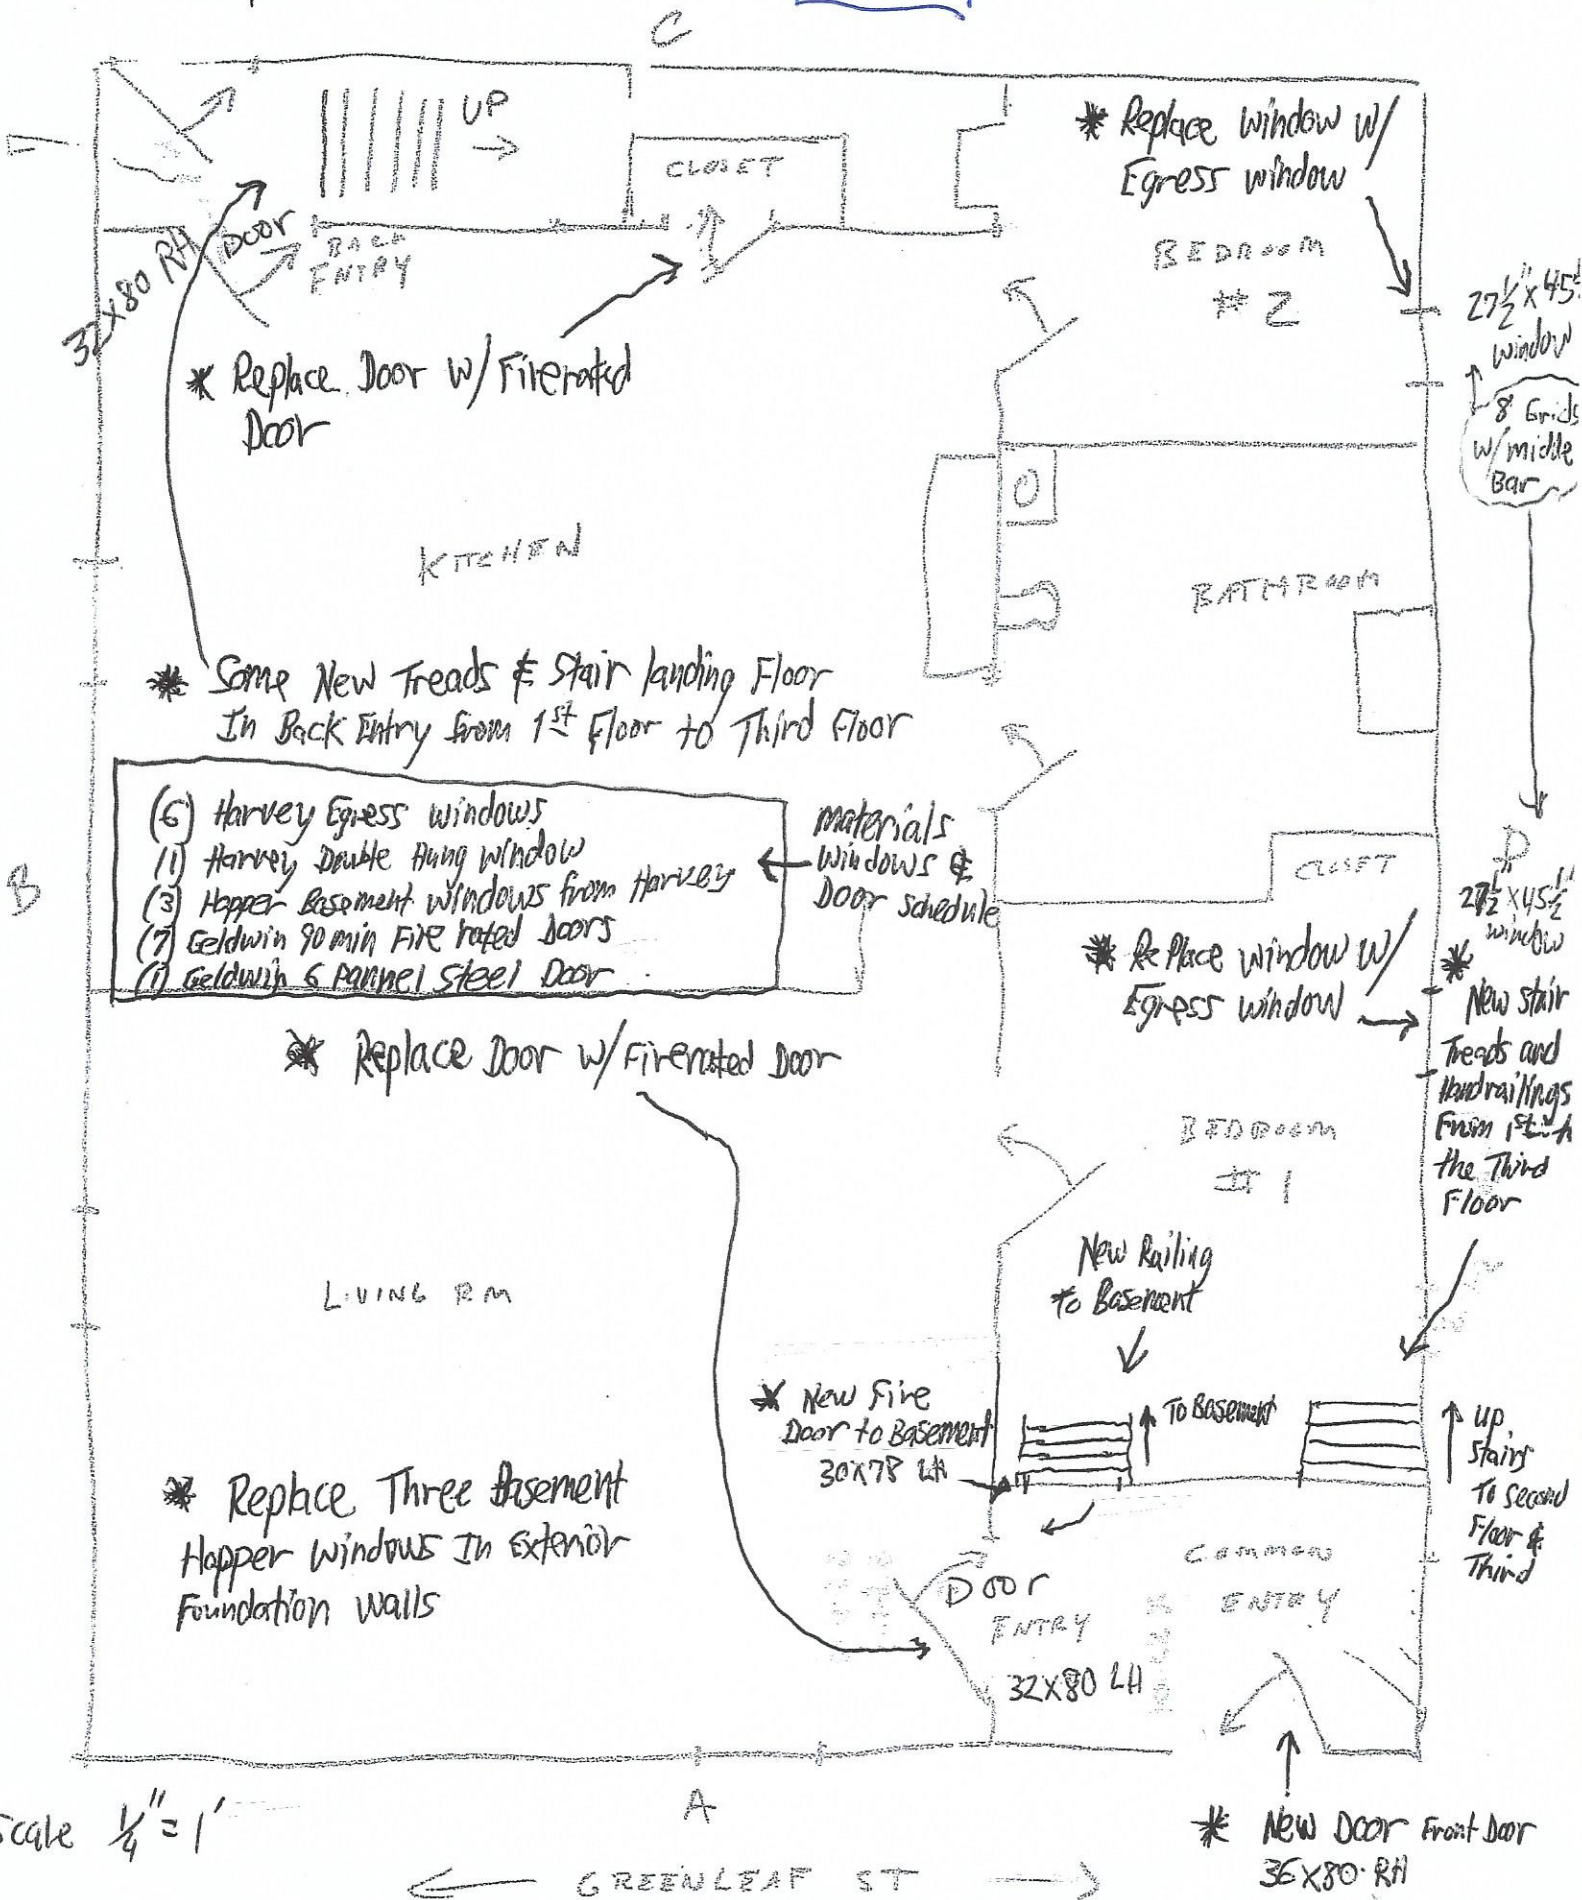 C
UP
→
CLOSET
* Replace Window W/
Egress window
BEDROOM
# 2
32X80 RH
DOOR
BACK
ENTRY
* Replace Door W/ Firerated
Door
27 1/2" X 45
window
8 Grids
W/ middle
Bar
KITCHEN
BATHROOM
* Some New Treads & Stair landing Floor
In Back Entry from 1st Floor to Third Floor
(6) Harvey Egress windows
(1) Harvey Double Hung window
(3) Hopper Basement windows from Harvey
(7) Geldwin 90 min Fire rated Doors
(1) Geldwin 6 pannel Steel Door
materials
windows &
Door schedule
B
CLOSET
D
27 1/2 X 45 1/2"
window
* Replace window W/
Egress window
* New stair
Treads and
Handrailings
From 1st
the Third
Floor
* Replace Door W/ Firerated Door
BEDROOM
# 1
LIVING RM
New Railing
to Basement
* New Fire
Door to Basement
30X78 LH
To Basement
up
Stairs
To second
Floor &
Third
* Replace Three Basement
Hopper windows In Exterior
Foundation walls
Door
ENTRY
32X80 LH
COMMON
ENTRY
A
Scale 1/4" = 1'
GREENLEAF ST
* New Door Front Door
36X80 RH